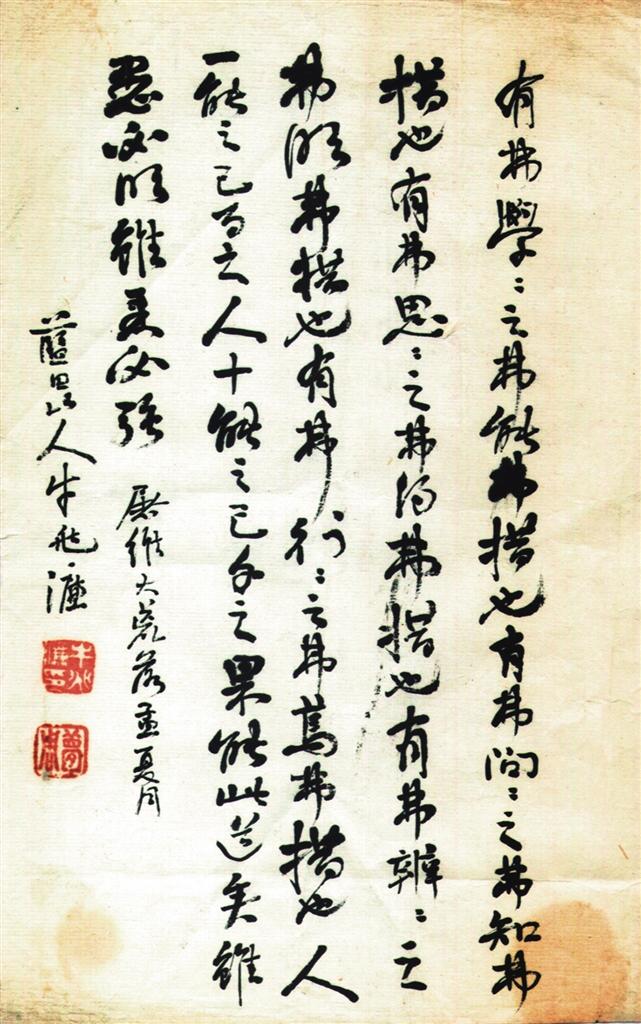 有弗學〻之弗能弗措也有弗問〻之弗知弗
措也有弗思〻之弗得弗措也有弗辨〻之
弗明弗措也有弗行〻之弗篤弗措也人
一能之己百之人十能之己千之果能此道矣雖
愚必明雖柔必強
屠維大荒落孟夏月
藍田山人牛兆濂
牛兆濂印
夢周